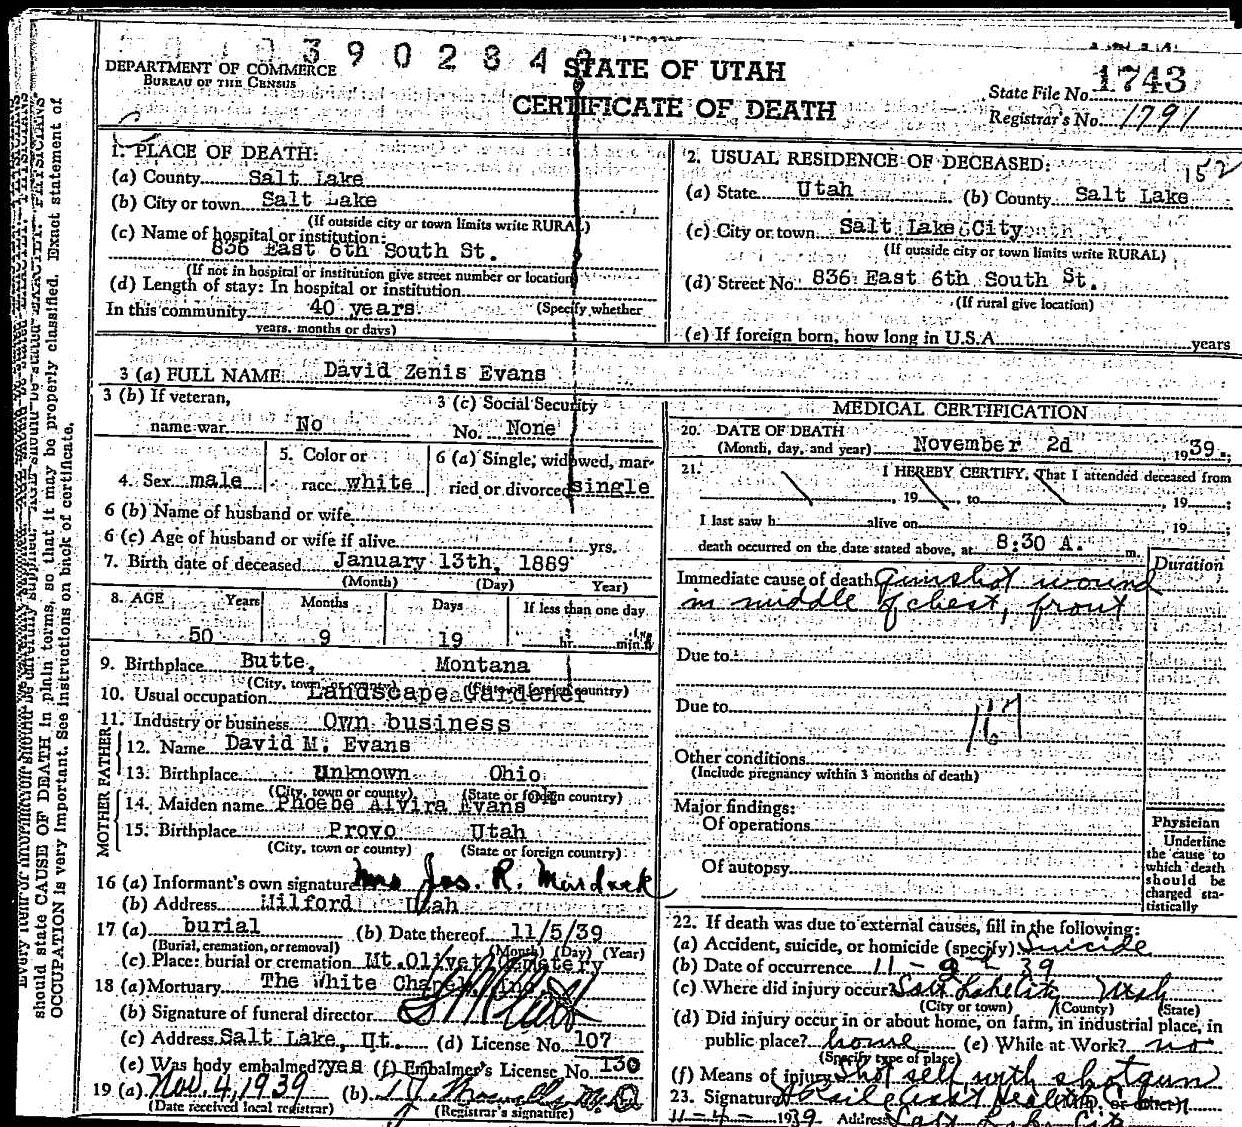 3902840
DEPARTMENT OF COMMERCE
BUREAU OF THE CENSUS
STATE OF UTAH
CERTIFICATE OF DEATH
State File No. 1743
Registrar's No. 1791
152
1. PLACE OF DEATH:
(a) County Salt Lake
(b) City or town Salt Lake
(If outside city or town limits write RURAL)
(c) Name of hospital or institution:
836 East 6th South St.
(If not in hospital or institution give street number or location)
(d) Length of stay: In hospital or institution
In this community 40 years (Specify whether
years, months or days)
2. USUAL RESIDENCE OF DECEASED:
(a) State Utah (b) County Salt Lake
(c) City or town Salt Lake City
(If outside city or town limits write RURAL)
(d) Street No. 836 East 6th South St.
(If rural give location)
(e) If foreign born, how long in U.S.A. years
3 (a) FULL NAME: David Zenis Evans
3 (b) If veteran,
name war No
3 (c) Social Security
No. None
4. Sex male
5. Color or
race white
6 (a) Single, widowed, mar-
ried or divorced single
6 (b) Name of husband or wife
6 (c) Age of husband or wife if alive yrs.
7. Birth date of deceased January 13th, 1889
(Month) (Day) Year)
8. AGE Years Months Days If less than one day
50 9 19 hr. min.
9. Birthplace Butte, Montana
(City, town or county) (State or foreign country)
10. Usual occupation Landscape Gardener
11. Industry or business Own business
FATHER
12. Name David M. Evans
13. Birthplace Unknown Ohio
(City, town or county) (State or foreign country)
MOTHER
14. Maiden name Phoebe Alvira Evans
15. Birthplace Provo Utah
(City, town or county) (State or foreign country)
16 (a) Informant's own signature Mrs Jos. R. Murdock
(b) Address Milford Utah
17 (a) burial (b) Date thereof 11/5/39
(Burial, cremation, or removal) (Month) (Day) (Year)
(c) Place: burial or cremation Mt. Olivet Cemetery
18 (a) Mortuary The White Chapel, Inc.
(b) Signature of funeral director
(c) Address Salt Lake, Ut. (d) License No. 107
(e) Was body embalmed? yes (f) Embalmer's License No. 130
19 (a) Nov. 4, 1939 (b)
(Date received local registrar) (Registrar's signature)
MEDICAL CERTIFICATION
20. DATE OF DEATH
(Month, day, and year) November 2d 1939.
21. I HEREBY CERTIFY, That I attended deceased from
, 19 , to , 19 ;
I last saw h alive on , 19 ;
death occurred on the date stated above, at 8:30 A. m.
Duration
Immediate cause of death Gunshot wound
in middle of chest, front
Due to
Due to
167
Other conditions
(Include pregnancy within 3 months of death)
Major findings:
Of operations
Of autopsy
Physician
Underline
the cause to
which death
should be
charged sta-
tistically
22. If death was due to external causes, fill in the following:
(a) Accident, suicide, or homicide (specify) Suicide
(b) Date of occurrence 11 - 2 - 39
(c) Where did injury occur? Salt Lake City Utah
(City or town) (County) (State)
(d) Did injury occur in or about home, on farm, in industrial place, in
public place? home (e) While at Work? no
(Specify type of place)
(f) Means of injury Shot self with shotgun
23. Signature
11 - 4 - 1939 Address Salt Lake City
should state CAUSE OF DEATH in plain terms, so that it may be properly classified. Exact statement of
OCCUPATION is very important. See instructions on back of certificate.